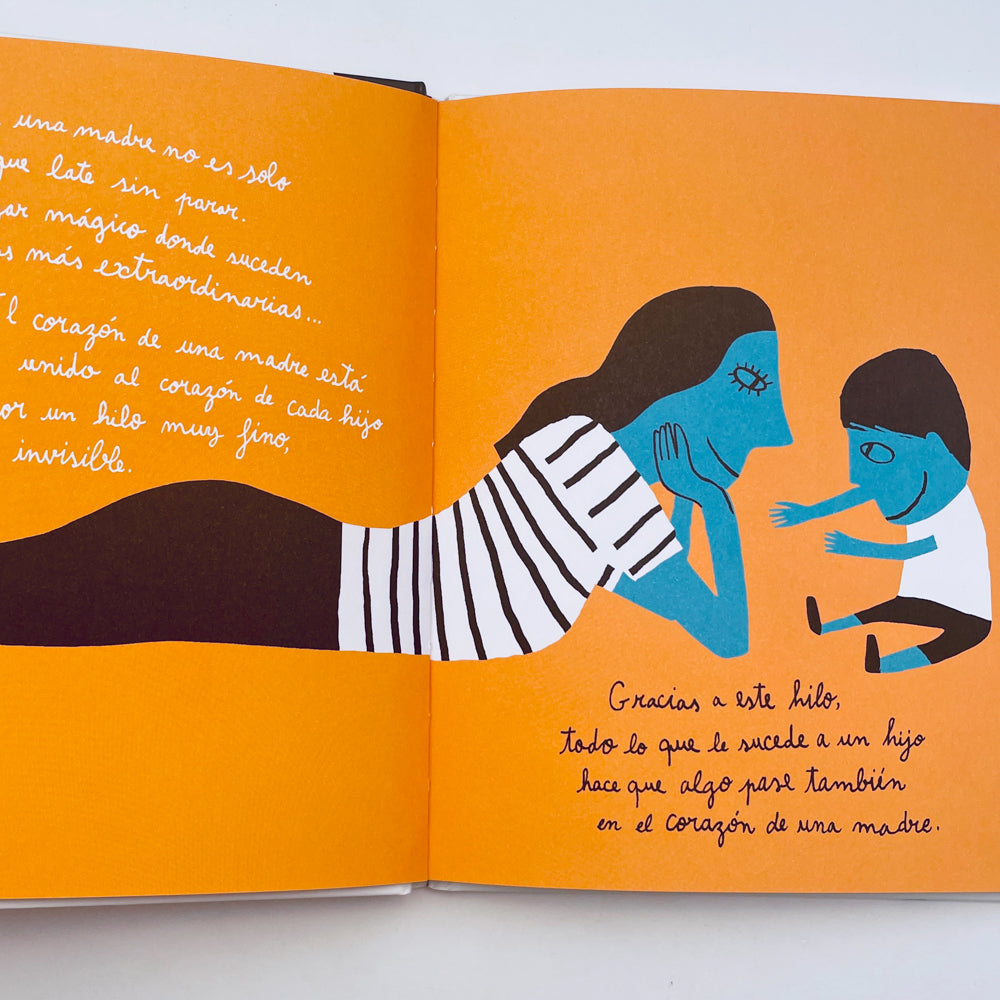 una madre no es solo
que late sin parar.
mágico donde suceden
más extraordinarias...
corazón de una madre está
unido al corazón de cada hijo
un hilo muy fino,
invisible.
Gracias a este hilo,
todo lo que le sucede a un hijo
hace que algo pase también
en el corazón de una madre.